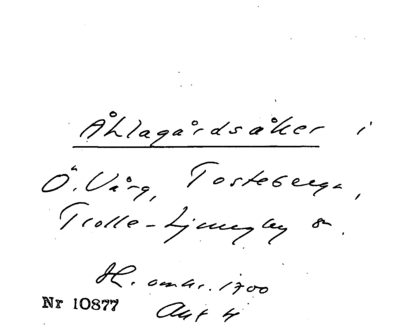 Åhlagårdsåker i
Ö. Vång, Tosteberga,
Trolle-Ljungby sn.
H. omkr. 1700
Akt 4
Nr 10877